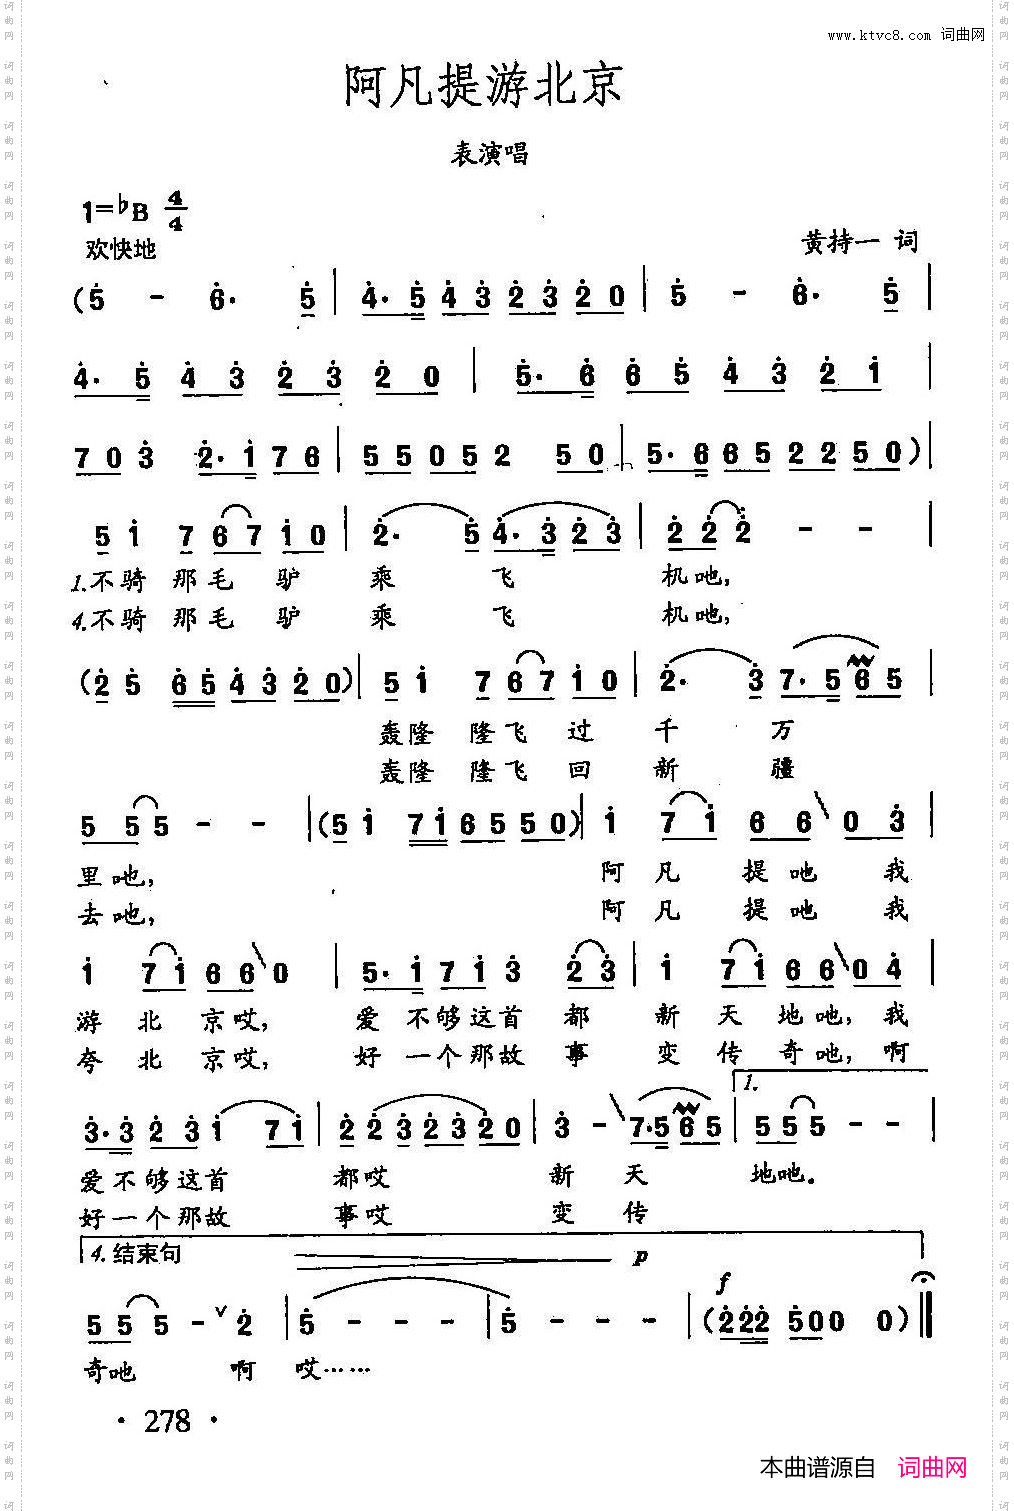 www.ktvc8.com 词曲网
阿凡提游北京
表演唱
1=♭B 4/4
欢快地
黄持一 词
(5 - 6. 5 | 4.5 43 23 20 | 5 - 6. 5 |
4.5 43 23 20 | 5.6 65 43 21 |
703 2.176 | 55052 50 | 5.6652250)|
51 767 10 | 2. 54.323 | 222 - - |
1.不骑那毛驴乘飞机吔,
4.不骑那毛驴乘飞机吔,
(25 654320)| 51 767 10 | 2. 37.565 |
轰隆隆飞过千万
轰隆隆飞回新疆
555 - - |(51 7165550)| 1 71 66 03 |
里吔, 阿凡提吔我
去吔, 阿凡提吔我
1 71 660 | 5.1713 23 | 1 71 6604 |
游北京哎, 爱不够这首都新天地吔,我
夸北京哎, 好一个那故事变传奇吔,啊
1.
3.3231 71 | 22323 20 | 3 - 7.565 | 555 - - |
爱不够这首都哎新天地吔。
好一个那故事哎变传
4.结束句 p
f
555 - 2 | 5 - - - | 5 - - - |(222 500 0)‖
奇吔 啊 哎……
· 278 ·
本曲谱源自 词曲网